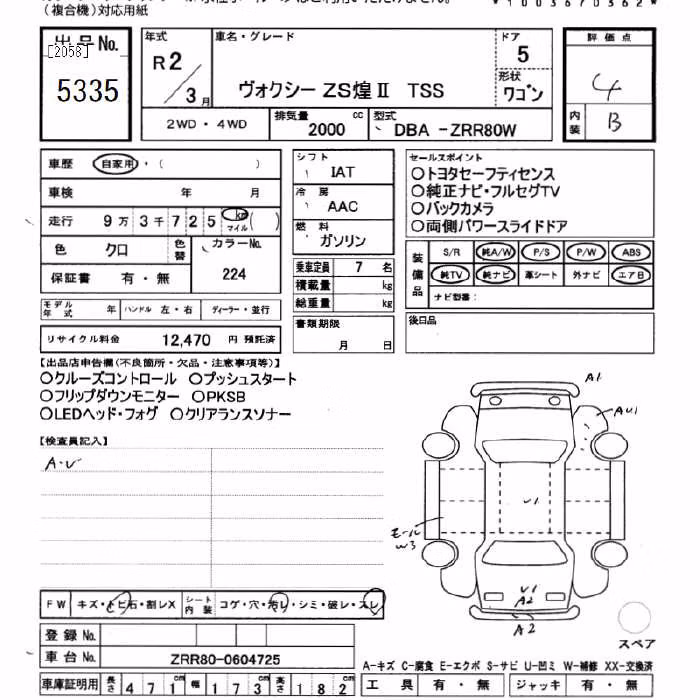 （複合機）対応用紙
*1003670362*
出品No.
[2058]
5335
年式
R2/3月
車名・グレード
ヴォクシー ZS煌Ⅱ TSS
ドア
5
形状
ワゴン
評価点
4
内装
B
2WD・4WD
排気量
2000 cc
型式
DBA -ZRR80W
車歴 自家用・( )
車検 年 月
走行 9万3千725 km マイル ( )
色 クロ
色替
カラーNo.
224
保証書 有・無
モデル年式 年
ハンドル 左・右
ディーラー・並行
リサイクル料金 12,470 円 預託済
シフト
IAT
冷房
AAC
燃料
ガソリン
乗車定員 7 名
積載量 kg
総重量 kg
書類期限
月 日
セールスポイント
○トヨタセーフティセンス
○純正ナビ・フルセグTV
○バックカメラ
○両側パワースライドドア
装備品
S/R 純A/W P/S P/W ABS
純TV 純ナビ 革シート 外ナビ エアB
ナビ型番：
後日品
【出品店申告欄(不良箇所・欠品・注意事項等)】
○クルーズコントロール ○プッシュスタート
○フリップダウンモニター ○PKSB
○LEDヘッド・フォグ ○クリアランスソナー
【検査員記入】
A・U
A1
AU1
U1
モール
W3
U1
A2
A2
スペア
FW キズ・トビ石・割レX
シート内装 コゲ・穴・汚レ・シミ・破レ・スレ
登録No.
車台No. ZRR80-0604725
車庫証明用 長さ 471cm 幅 173cm 高さ 182cm
A-キズ C-腐食 E-エクボ S-サビ U-凹ミ W-補修 XX-交換済
工具 有・無 ジャッキ 有・無